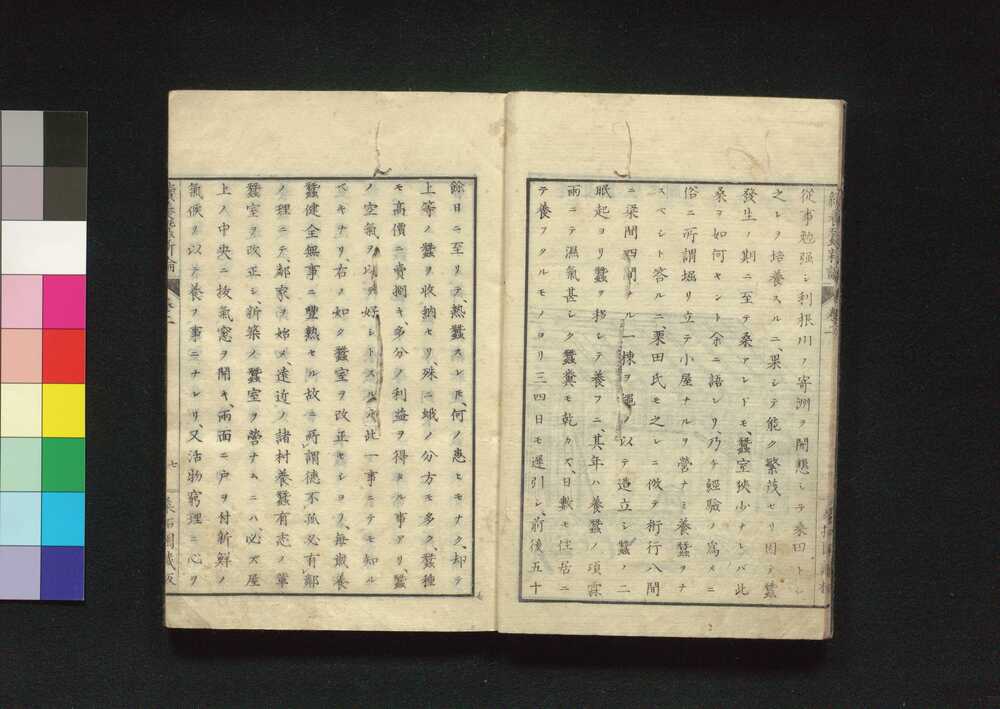 從事勉强シ利根川ノ寄洲ヲ開懇シテ桑田トシ
之レヲ培養スルニ、果シテ能ク繁茂セリ因テ蠶
發生ノ期ニ至テ桑アレドモ、蠶室狹少ナレバ此
桑ヲ如何セント余ニ語レリ、乃チ經驗ノ爲メニ
俗ニ所謂堀リ立テ小屋ナルヲ營ナミ養蠶ヲナ
スベシト答ルニ、栗田氏モ之レニ倣テ桁行八間
ニ梁間四間ナル一棟ヲ繩ノ以テ造立シ蠶ノ二
眠起ヨリ蠶ヲ移シテ養フニ、其年ハ養蠶ノ項霖
雨ニテ濕氣甚シク蠶糞モ乾カズ、日數モ住居ニ
テ養フタルモノヨリ三四日モ遲引シ、前後五十
餘日ニ至リテ、熱蠶スレドモ、何ノ患ヒモナク、却テ
上等ノ蠶ヲ收納セリ、殊ニ蛾ノ分方モ多ク、蠶種
モ高價ニ賣捌キ、多分ノ利益ヲ得タル事アリ、蠶
ノ空氣ヲ以テ好シトスルハ此一事ニテモ知ル
ベキナリ、右ノ如ク蠶室ヲ改正セシヨリ、毎歲養
蠶健全無事ニ豐熟セル故ニ所謂德不孤必有鄰
ノ理ニテ、鄰家ヲ始メ、遠近ノ諸村養蠶有志ノ輩
蠶室ヲ改正シ、新築ノ蠶室ヲ營ナムニハ、必ズ屋
上ノ中央ニ拔氣窓ヲ開キ、兩面ニ戸ヲ付新鮮ノ
氣候ヲ以テ養フ事ニナレリ、又活物窮理ニ心ヲ
七